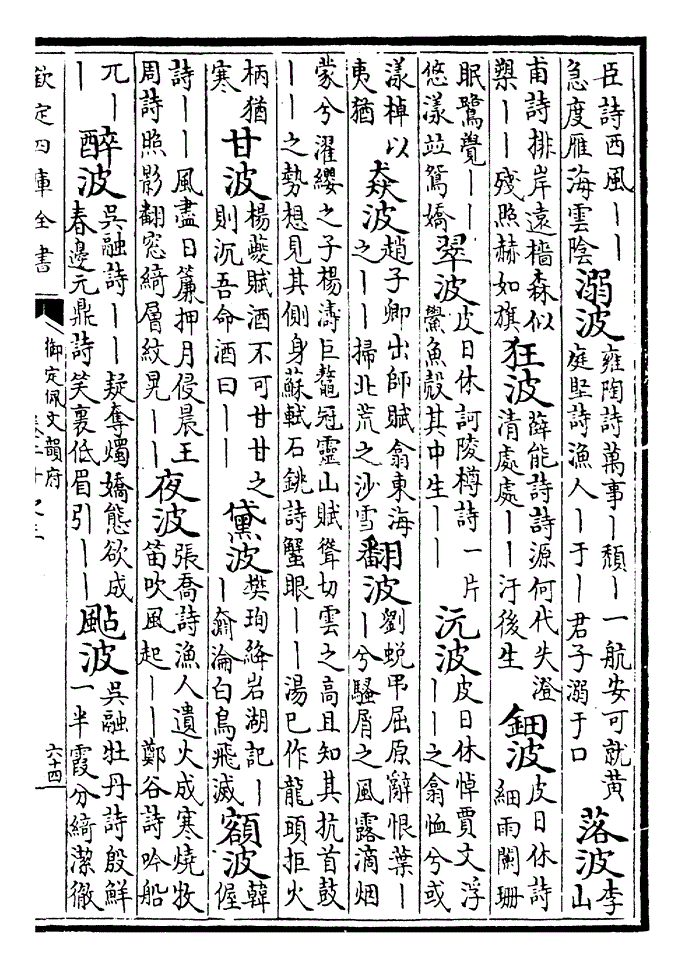 臣詩西風丨丨
急度雁海雲陰
溺波
雍陶詩萬事丨頽丨一航安可就黃
庭堅詩漁人丨于丨君子溺于口
落波
李
山
甫詩排岸遠檣森似
槊丨丨殘照赫如旗
狂波
薛能詩詩源何代失澄
清處處丨丨汙後生
鈿波
皮日休詩
細雨闌珊
眠鷺覺丨丨
悠漾竝鴛嬌
翠波
皮日休訶陵樽詩一片
鱟魚殼其中生丨丨
沅波
皮日休悼賈文浮
丨丨之翕恤兮或
漾棹以
夷猶
猋波
趙子卿出師賦翕東海
之丨丨掃北荒之沙雪
翻波
劉蛻弔屈原辭恨葉丨
丨兮騷屑之風露滴烟
蒙兮濯纓之子楊濤巨鼇冠靈山賦聳切雲之高且知其抗首鼓
丨丨之勢想見其側身蘇軾石銚詩蟹眼丨丨湯已作龍頭拒火
柄猶
寒
甘波
楊夔賦酒不可甘甘之
則沉吾命酒曰丨丨
黛波
樊珣絳岩湖記丨
丨奫淪白鳥飛滅
額波
韓
偓
詩丨丨風盡日簾押月侵晨王
周詩照影翻窓綺層紋晃丨丨
夜波
張喬詩漁人遺火成寒燒牧
笛吹風起丨丨鄭谷詩吟船
兀丨
丨
醉波
吳融詩丨丨疑奪燭嬌態欲成
春邊元鼎詩笑裏低眉引丨丨
颭波
吳融牡丹詩殷鮮
一半霞分綺潔徹
欽定四庫全書
御定佩文韻府
卷二十之三
六十四